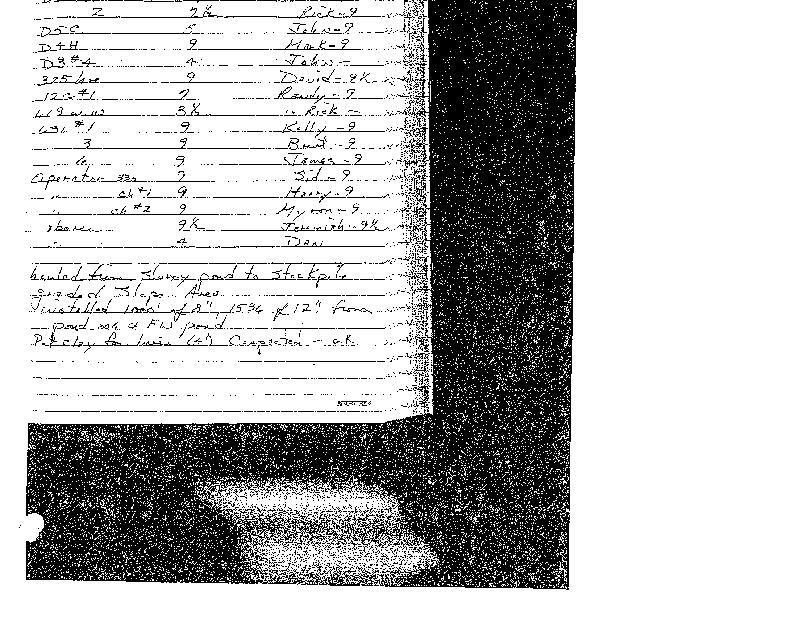 2 7½ Rick-9
D5C 5 John-9
D4H 9 Mark-9
D3#4 4 John -
325 hoe 9 David-9½
12G#1 7 Randy-9
3½ Rick -
631#1 9 Kelly-9
3 9 Burt-9
6 9 James-9
Operator 7 Sid-9
" ch#1 9 Harry-9
" ch#2 9 Myron-9
9½ Jeremiah-9½
" 4 Dan
hauled from Slurry pond to Stockpile
graded Slope Area
installed of 8", 1536 of 12" from
pond FW pond
clay for Compacted - ok